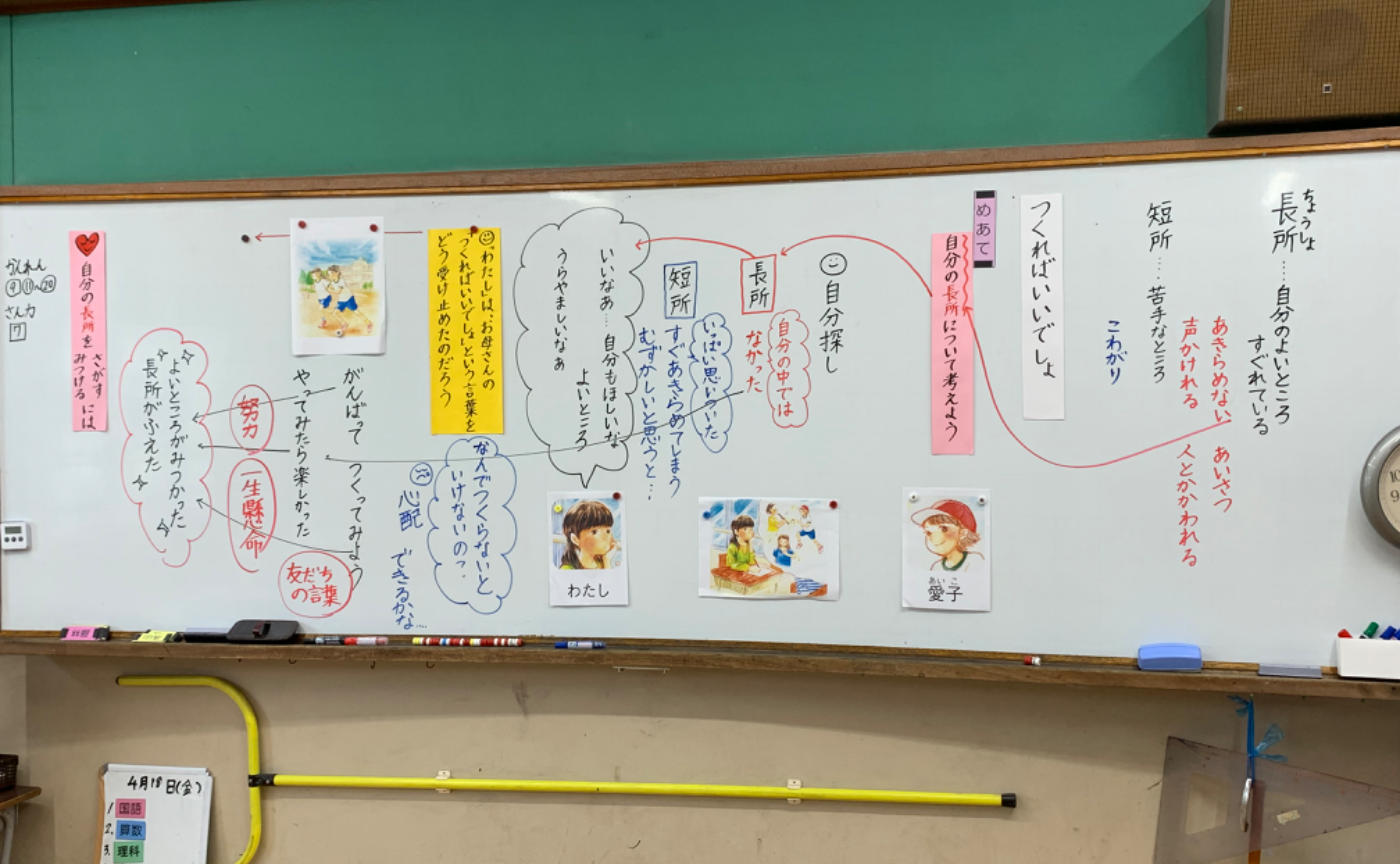 ちょうしょ
長所……自分のよいところ
すぐれている
あきらめない　あいさつ
声かけれる　人とかかわれる
短所……苦手なところ
こわがり
つくればいいでしょ
めあて
自分の長所について考えよう
あいこ
愛子
自分探し
長所
自分の中では
なかった
短所
いっぱい思いついた
すぐあきらめてしまう
むずかしいと思うと…
いいなあ…　自分もほしいな
よいところ
うらやましいなぁ
わたし
「わたし」は、お母さんの
「つくればいいでしょ」という言葉を
どう受け止めたのだろう
なんでつくらないと
いけないの？
心配　できるかな…
がんばって　つくってみよう
やってみたら楽しかった
友だち
の言葉
努力
一生懸命
よいところがみつかった
長所がふえた
自分の長所を
さがす
みつける
には
かんれん
⑨⑪〜⑳
さん力
7
10
9
4月18日(金)
1 国語
2. 算数
3. 理科